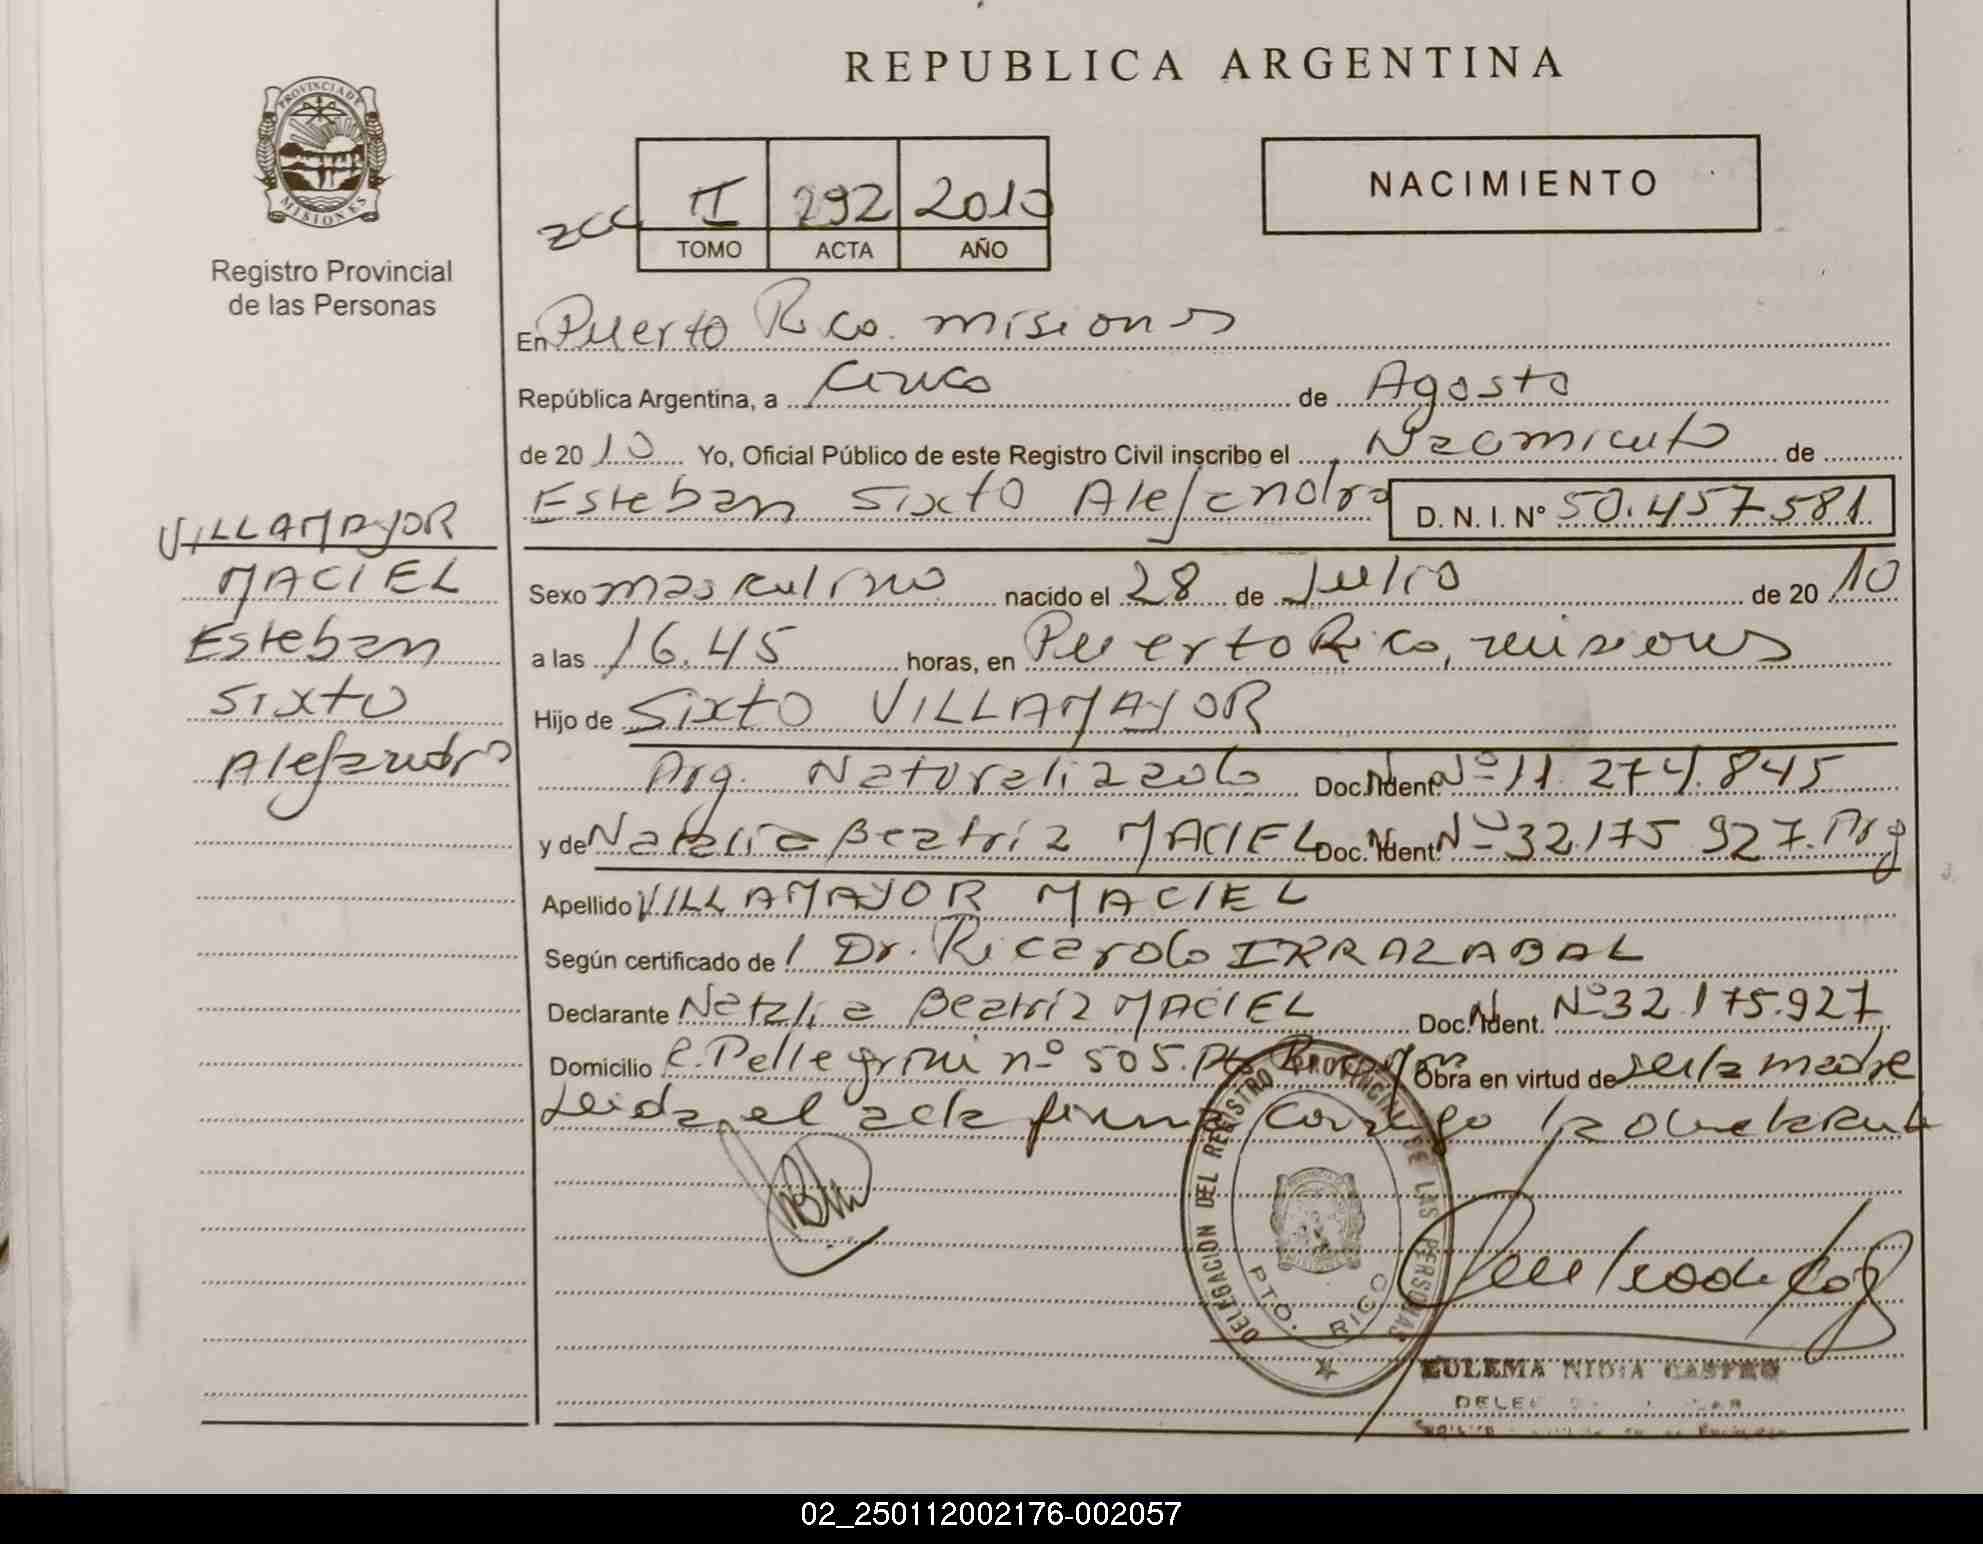 REPUBLICA ARGENTINA
PROVINCIA DE MISIONES
Registro Provincial
de las Personas
II 292 2010
TOMO ACTA AÑO
NACIMIENTO
En Puerto Rico. misiones
República Argentina, a Cinco de Agosto
de 2010 Yo, Oficial Público de este Registro Civil inscribo el Nacimiento de
Esteban Sixto Alejandro D. N. I. N° 50.457.581
VILLAMAYOR
MACIEL
Esteban
Sixto
Alejandro
Sexo masculino nacido el 28 de Julio de 2010
a las 16.45 horas, en Puerto Rico, misiones
Hijo de Sixto VILLAMAYOR
Arg. Naturalizado Doc. Ident. Nº 11.274.845
y de Natalia Beatríz MACIEL Doc. Ident. Nº 32.175.927. Arg
Apellido VILLAMAYOR MACIEL
Según certificado de / Dr. Ricardo IRRAZABAL
Declarante Natalia Beatríz MACIEL Doc. Ident. Nº 32.175.927
Domicilio C. Pellegrini nº 505. Pto. Rico Obra en virtud de ser la madre
Leida el acta firma conmigo la declarante
DELEGACION DEL REGISTRO PROVINCIAL DE LAS PERSONAS
PTO. RICO
ZULEMA NIDIA CASTRO
02_250112002176-002057